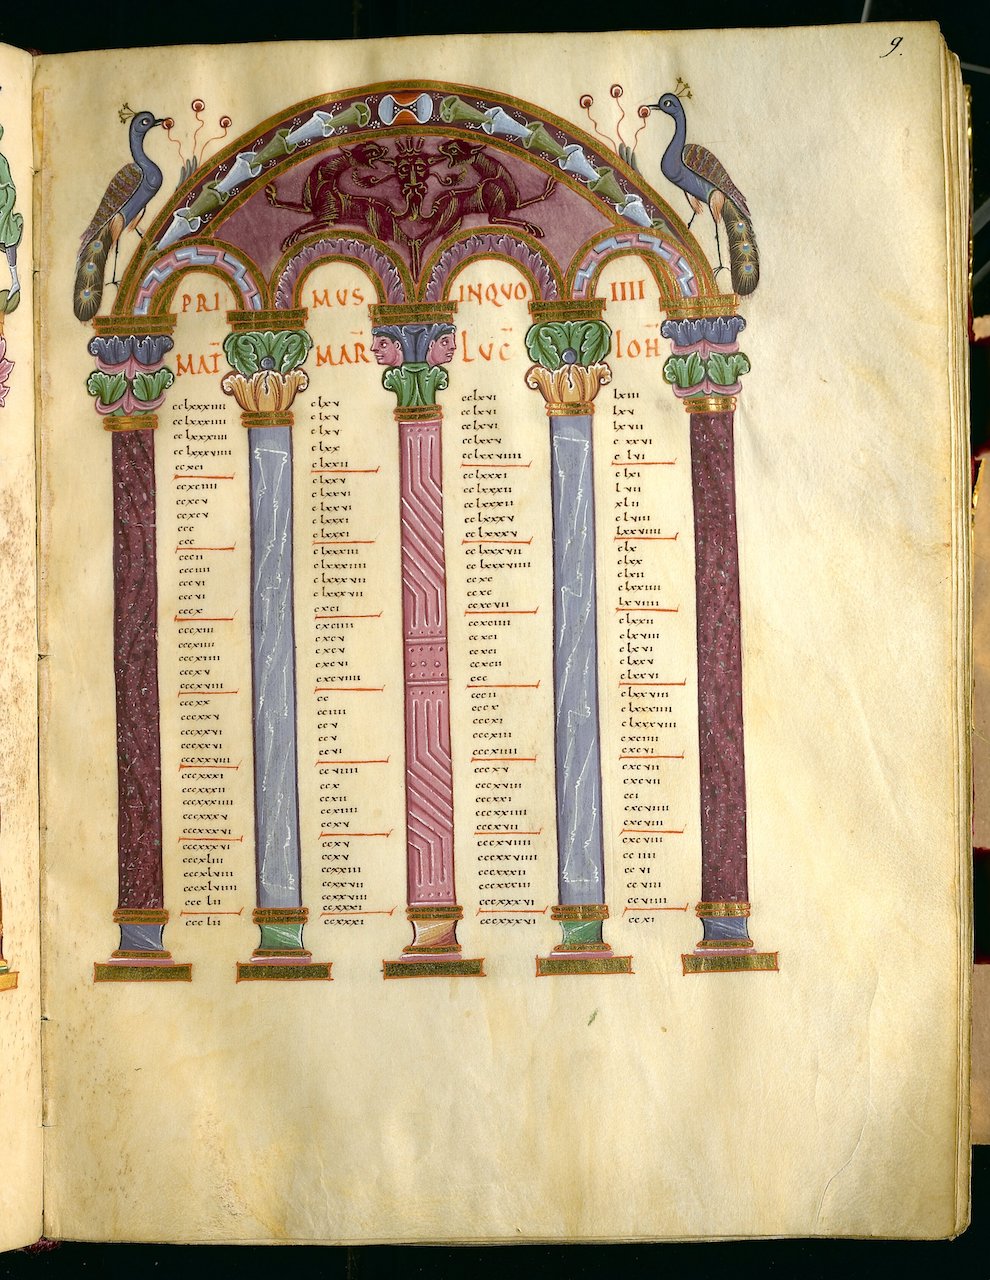 9.
PRI MUS INQUO IIII
MAT̄ MAR̄ LUC̄ IOH̄
cclxxxiiii clxv cclxvi lxiii
cclxxxiiii clxv cclxvi lxv
cclxxxiiii clxv cclxvi lxvii
cclxxxviiii clxx cclxxv cxxvi
ccxci clxxii cclxxviiii clvi
ccxciiii clxxv cclxxxi clxi
ccxcv clxxvi cclxxxii lvii
ccxcv clxxvi cclxxxii xlii
ccc clxxxi cclxxxv clviii
ccc clxxxi cclxxxv lxxviiii
cccii clxxxiii cclxxxvii clx
ccciiii clxxxiiii cclxxxviiii clxx
cccvi clxxxvii ccxc clxii
cccvi clxxxvii ccxc clxxiiii
cccx cxci ccxcvii lxviiii
cccxiii cxciiii ccxciiii clxxii
cccxiiii cxcv ccxci clxviii
cccxiiii cxcv ccxci clxvi
cccxv cxcvi ccxcii clxxv
cccxviii cxcviiii ccc clxxvi
cccxx cc cccii clxxviii
cccxxv cciiii cccx clxxxiiii
cccxxvi ccv cccxi clxxxviii
cccxxvi ccv cccxiii cxciiii
cccxxviii ccvi cccxiiii cxcvi
cccxxxi ccviiii cccxv cxcvii
cccxxxii ccx cccxviii cxcvii
cccxxxiiii ccxii cccxxi cci
cccxxxv ccxiiii cccxxiiii cxcviiii
cccxxxvi ccxv cccxvii cxcviii
cccxxxvi ccxv cccxxviiii cxcviii
cccxliii ccxv cccxxviiii cciiii
cccxlviii ccxxiii cccxxxii ccvi
cccxlviiii ccxxvii cccxxxiii ccviii
ccclii ccxxviii cccxxxvi ccviiii
ccxxxi
ccclii ccxxxi cccxxxvi ccxi